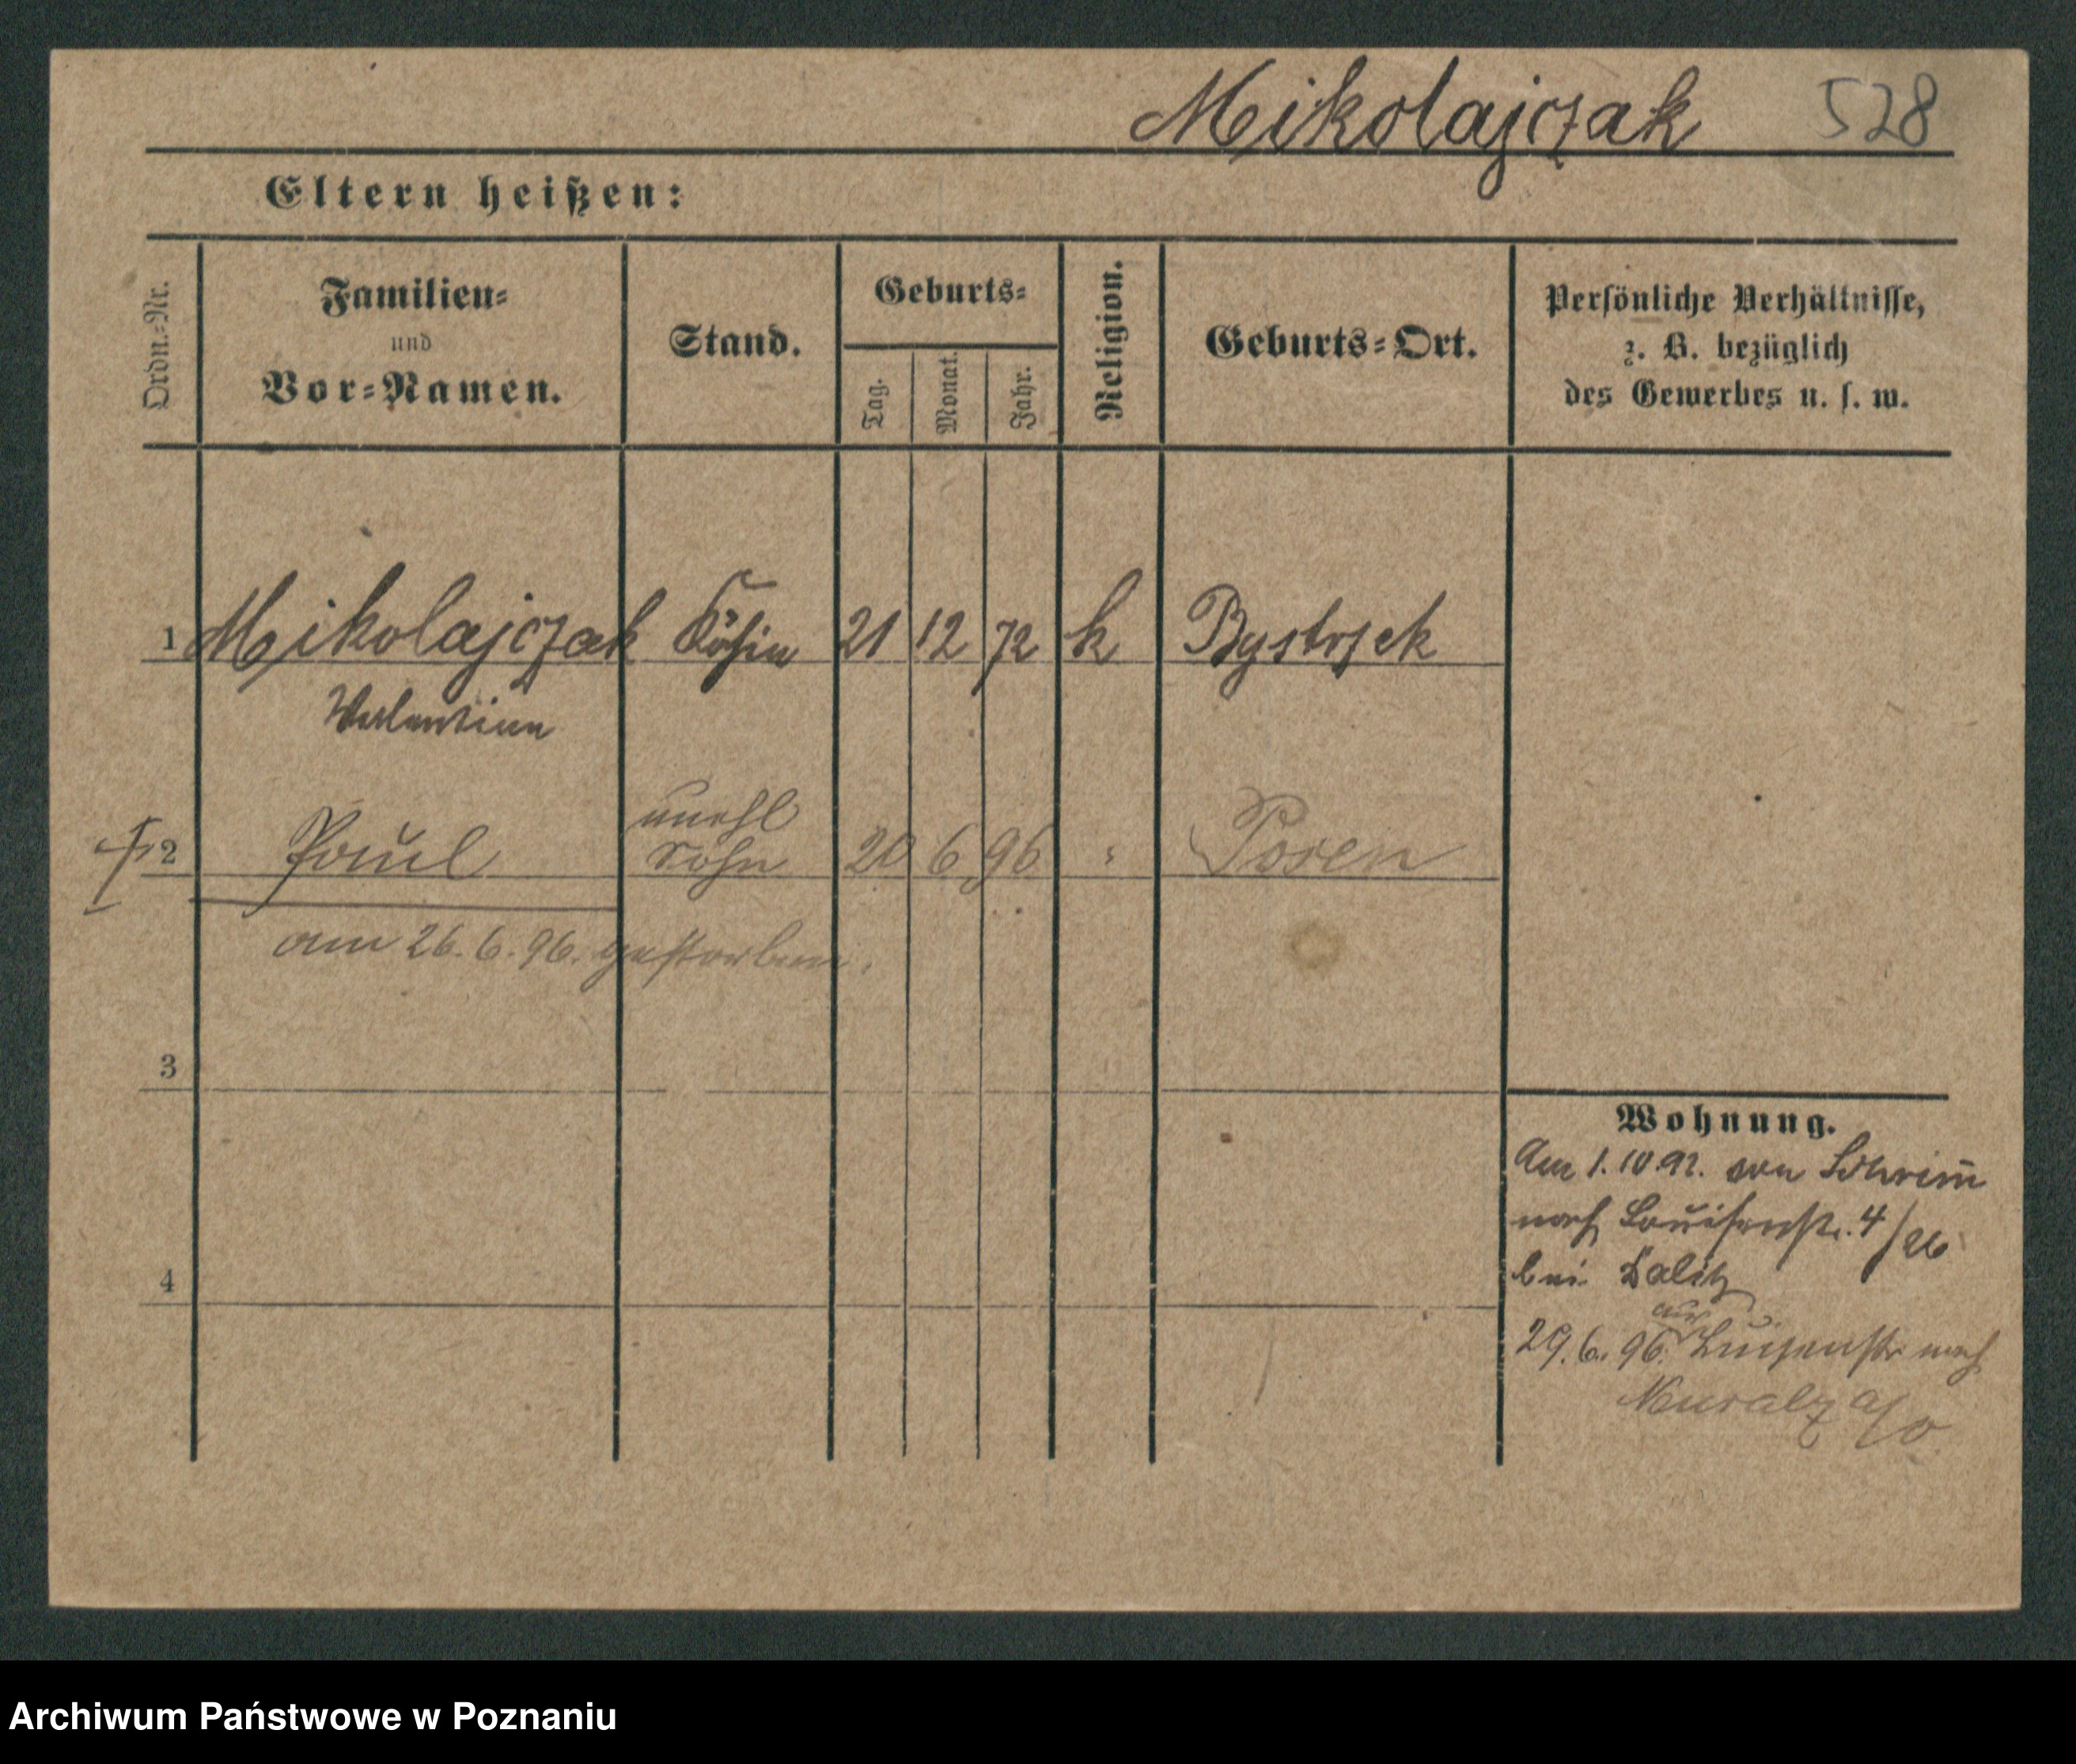 Mikolajczak 528
Eltern heißen:
Ordn.=Nr.
Familien=
und
Vor=Namen.
Stand.
Geburts=
Tag.
Monat.
Jahr.
Religion.
Geburts=Ort.
Persönliche Verhältnisse,
z. B. bezüglich
des Gewerbes u. s. w.
1 Mikolajczak Köchin 21 12 72 k Bystrzek
Valentina
unehl
2 Paul Sohn 20 6 96 " Posen
am 26.6.96. gestorben.
3
4
Wohnung.
Am 1.10.92. von Schrimm
nach Louisenstr. 4/
bei
aus
29.6.96. Luisenstr nach
Archiwum Państwowe w Poznaniu